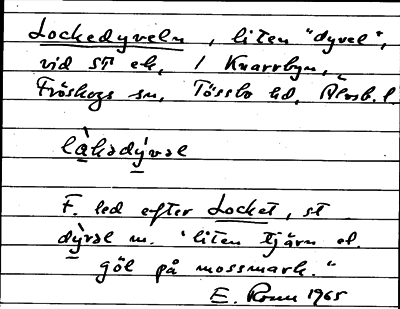 Lockedyveln, liten "dyvel",
vid st ek, / Knarrbyn,
Fröskogs sn, Tössbo hd, Älvsb. l.
låkədỳvəl
F. led efter Locket, st
dỳvəl m. "liten tjärn el.
göl på mossmark."
E. Ronn 1965